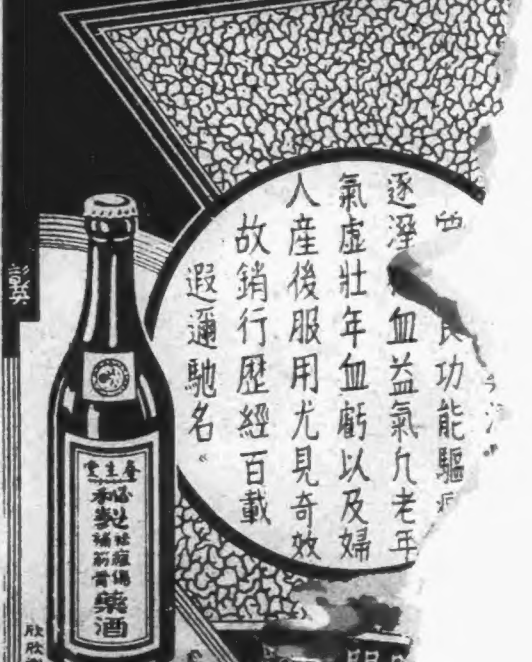 良功能驅
逐溼血益氣凢老年
氣虛壯年血虧以及婦
人產後服用尤見奇效
故銷行歷經百載
遐邇馳名
堂生養
補筋骨
藥酒
欣欣